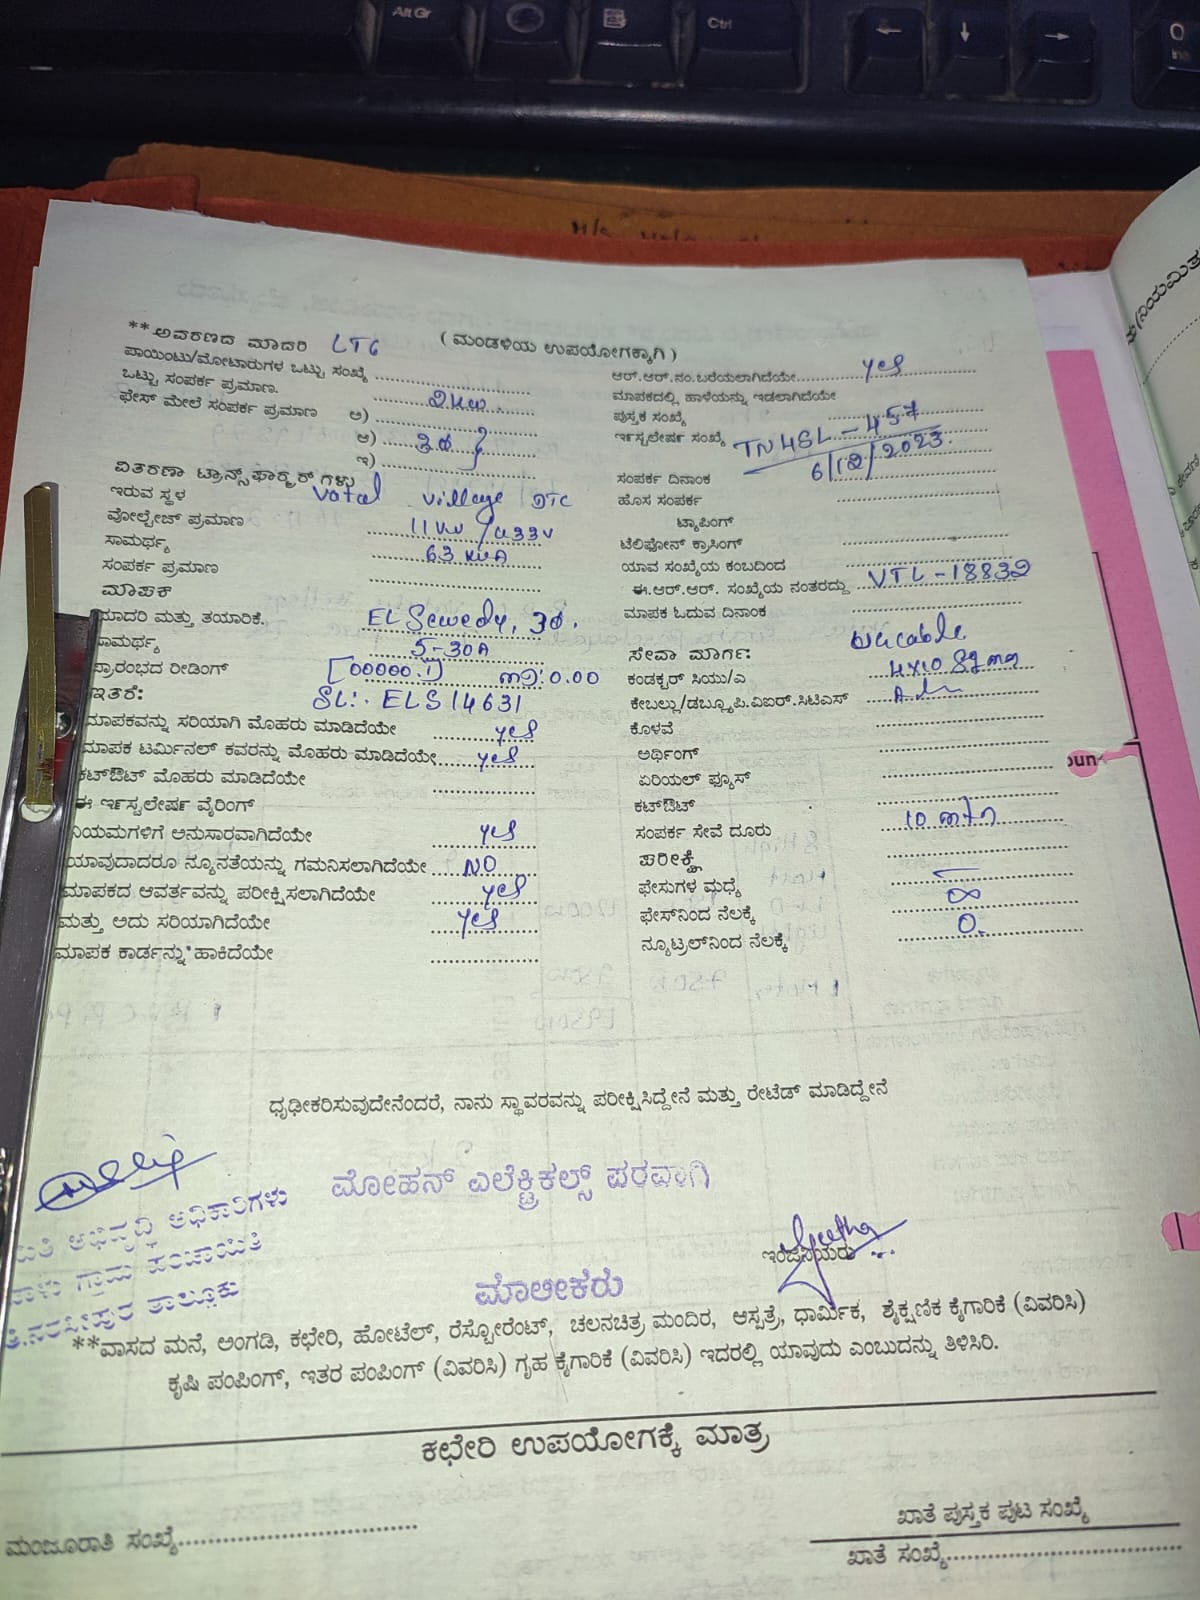 Alt Gr
Ctrl
** ಆವರಣದ ಮಾದರಿ LT6 (ಮಂಡಳಿಯ ಉಪಯೋಗಕ್ಕಾಗಿ)
ಪಾಯಿಂಟು/ಮೋಟಾರುಗಳ ಒಟ್ಟು ಸಂಖ್ಯೆ
ಒಟ್ಟು ಸಂಪರ್ಕ ಪ್ರಮಾಣ. 2KW.
ಫೇಸ್ ಮೇಲೆ ಸಂಪರ್ಕ ಪ್ರಮಾಣ ಅ)
ಆ) 3Ø }
ಇ)
ವಿತರಣಾ ಟ್ರಾನ್ಸ್‌ಫಾರ್ಮರ್ ಗಳು
ಇರುವ ಸ್ಥಳ Votal Village DTC
ವೋಲ್ಟೇಜ್ ಪ್ರಮಾಣ 11KV/433V
ಸಾಮರ್ಥ್ಯ 63 KVA
ಸಂಪರ್ಕ ಪ್ರಮಾಣ
ಮಾಪಕ
ಮಾದರಿ ಮತ್ತು ತಯಾರಿಕೆ. EL Sewedy, 3Ø.
ಸಾಮರ್ಥ್ಯ 5-30A
ಪ್ರಾರಂಭದ ರೀಡಿಂಗ್ [00000.1] MD:0.00
ಇತರೆ: SL:. ELS14631
ಮಾಪಕವನ್ನು ಸರಿಯಾಗಿ ಮೊಹರು ಮಾಡಿದೆಯೇ yes
ಮಾಪಕ ಟರ್ಮಿನಲ್ ಕವರನ್ನು ಮೊಹರು ಮಾಡಿದೆಯೇ yes
ಕಟ್‌ಔಟ್ ಮೊಹರು ಮಾಡಿದೆಯೇ
ಈ ಇನ್‌ಸ್ಟಲೇಷನ್ ವೈರಿಂಗ್
ನಿಯಮಗಳಿಗೆ ಅನುಸಾರವಾಗಿದೆಯೇ yes
ಯಾವುದಾದರೂ ನ್ಯೂನತೆಯನ್ನು ಗಮನಿಸಲಾಗಿದೆಯೇ NO
ಮಾಪಕದ ಆವರ್ತವನ್ನು ಪರೀಕ್ಷಿಸಲಾಗಿದೆಯೇ yes
ಮತ್ತು ಅದು ಸರಿಯಾಗಿದೆಯೇ yes
ಮಾಪಕ ಕಾರ್ಡನ್ನು ಹಾಕಿದೆಯೇ
ಆರ್.ಆರ್.ನಂ.ಬರೆಯಲಾಗಿದೆಯೇ yes
ಮಾಪಕದಲ್ಲಿ ಹಾಳೆಯನ್ನು ಇಡಲಾಗಿದೆಯೇ
ಪುಸ್ತಕ ಸಂಖ್ಯೆ
ಇನ್‌ಸ್ಟಲೇಷನ್ ಸಂಖ್ಯೆ TNHSL-457
6/12/2023.
ಸಂಪರ್ಕ ದಿನಾಂಕ
ಹೊಸ ಸಂಪರ್ಕ
ಟ್ಯಾಪಿಂಗ್
ಟೆಲಿಫೋನ್ ಕ್ರಾಸಿಂಗ್
ಯಾವ ಸಂಖ್ಯೆಯ ಕಂಬದಿಂದ
ಈ.ಆರ್.ಆರ್. ಸಂಖ್ಯೆಯ ನಂತರದ್ದು VTL-18832
ಮಾಪಕ ಓದುವ ದಿನಾಂಕ
ಸೇವಾ ಮಾರ್ಗ:
ಕಂಡಕ್ಟರ್ ಸಿಯು/ಎ 4X10 Sqmm
ಕೇಬಲ್ಲು/ಡಬ್ಲ್ಯೂ.ಪಿ.ಐಆರ್.ಸಿಟಿಎಸ್
ಕೊಳವೆ
ಅರ್ಥಿಂಗ್
ಏರಿಯಲ್ ಫ್ಯೂಸ್
ಕಟ್‌ಔಟ್
ಸಂಪರ್ಕ ಸೇವೆ ದೂರು 10 mtr
ಪರೀಕ್ಷೆ
ಫೇಸುಗಳ ಮಧ್ಯೆ
ಫೇಸ್‌ನಿಂದ ನೆಲಕ್ಕೆ ∞
ನ್ಯೂಟ್ರಲ್‌ನಿಂದ ನೆಲಕ್ಕೆ 0.
ಧೃಢೀಕರಿಸುವುದೇನೆಂದರೆ, ನಾನು ಸ್ಥಾವರವನ್ನು ಪರೀಕ್ಷಿಸಿದ್ದೇನೆ ಮತ್ತು ರೇಟೆಡ್ ಮಾಡಿದ್ದೇನೆ
ಮೋಹನ್ ಎಲೆಕ್ಟ್ರಿಕಲ್ಸ್ ಪರವಾಗಿ
ಅಭಿವೃದ್ಧಿ ಅಧಿಕಾರಿಗಳು
ಗ್ರಾಮ ಪಂಚಾಯಿತಿ
ತಿ.ನರಸೀಪುರ ತಾಲ್ಲೂಕು
ಇಂಜಿನಿಯರು
ಮಾಲೀಕರು
**ವಾಸದ ಮನೆ, ಅಂಗಡಿ, ಕಛೇರಿ, ಹೋಟೆಲ್, ರೆಸ್ಟೋರೆಂಟ್, ಚಲನಚಿತ್ರ ಮಂದಿರ, ಆಸ್ಪತ್ರೆ, ಧಾರ್ಮಿಕ, ಶೈಕ್ಷಣಿಕ ಕೈಗಾರಿಕೆ (ವಿವರಿಸಿ)
ಕೃಷಿ ಪಂಪಿಂಗ್, ಇತರ ಪಂಪಿಂಗ್ (ವಿವರಿಸಿ) ಗೃಹ ಕೈಗಾರಿಕೆ (ವಿವರಿಸಿ) ಇದರಲ್ಲಿ ಯಾವುದು ಎಂಬುದನ್ನು ತಿಳಿಸಿರಿ.
ಕಛೇರಿ ಉಪಯೋಗಕ್ಕೆ ಮಾತ್ರ
ಮಂಜೂರಾತಿ ಸಂಖ್ಯೆ
ಖಾತೆ ಪುಸ್ತಕ ಪುಟ ಸಂಖ್ಯೆ
ಖಾತೆ ಸಂಖ್ಯೆ